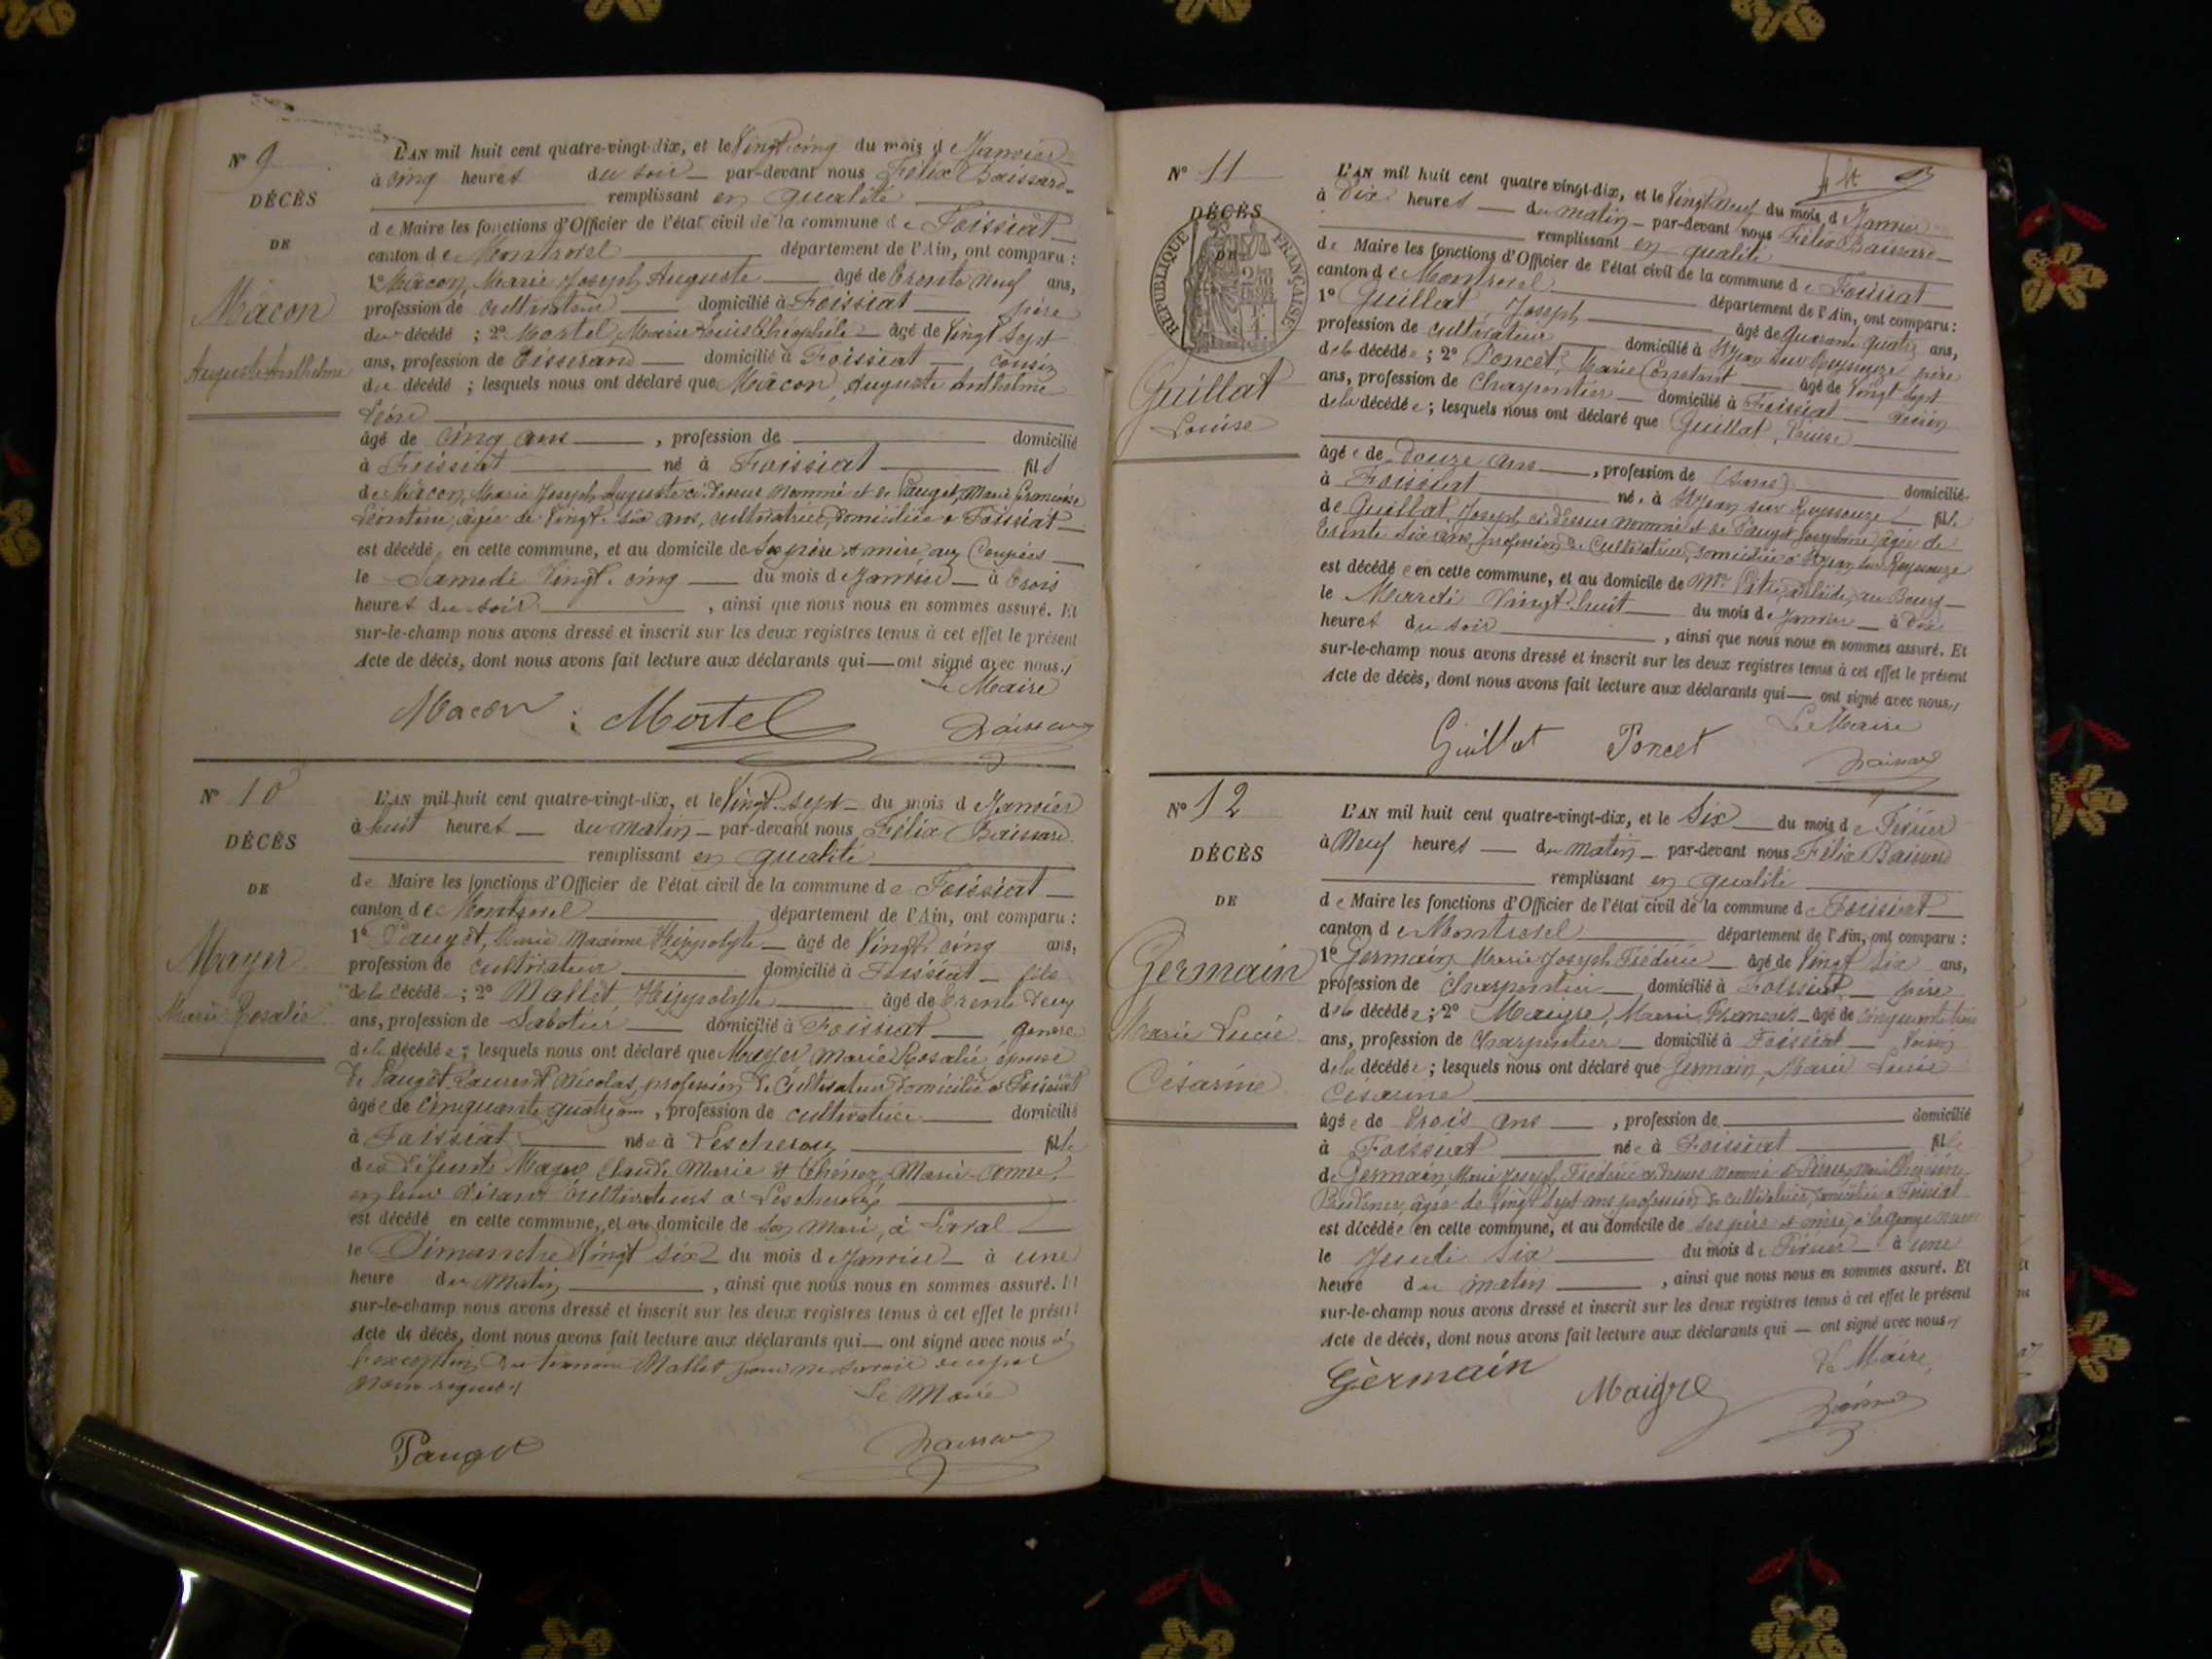 N° 9
DÉCÈS
DE
Mâcon
Auguste Anthelme
L'AN mil huit cent quatre-vingt-dix, et le Vingt cinq du mois de Janvier
à cinq heures du soir par-devant nous Félix Baissard
remplissant en qualité
de Maire les fonctions d'Officier de l'état civil de la commune de Foissiat
canton de Montrevel département de l'Ain, ont comparu :
1° Mâcon, Marie Joseph Auguste âgé de trente neuf ans,
profession de cultivateur domicilié à Foissiat père
du décédé ; 2° Mortel, Marie Louis Théophile âgé de Vingt Sept
ans, profession de Tisserand domicilié à Foissiat cousin
du décédé ; lesquels nous ont déclaré que Mâcon, Auguste Anthelme
Léon
âgé de cinq ans , profession de domicilié
à Foissiat né à Foissiat fils
de Mâcon, Marie Joseph Auguste ci-dessus nommé et de Pauget, Marie Françoise
Léontine, âgée de Vingt six ans, cultivatrice, domiciliée à Foissiat
est décédé en cette commune, et au domicile de Ses père et mère, aux
le Samedi Vingt cinq du mois de Janvier à trois
heures du soir , ainsi que nous nous en sommes assuré. Et
sur-le-champ nous avons dressé et inscrit sur les deux registres tenus à cet effet le présent
Acte de décès, dont nous avons fait lecture aux déclarants qui — ont signé avec nous.
Le Maire
Macon Mortel Baissard
N° 10
DÉCÈS
DE
Mayer
Marie Rosalie
L'AN mil huit cent quatre-vingt-dix, et le Vingt sept du mois de Janvier
à huit heures du matin par-devant nous Félix Baissard
remplissant en qualité
de Maire les fonctions d'Officier de l'état civil de la commune de Foissiat
canton de Montrevel département de l'Ain, ont comparu :
1° Pauget, Marie Maxime Hippolyte âgé de Vingt cinq ans,
profession de cultivateur domicilié à Foissiat fils
de la décédée ; 2° Mallet, Hippolyte âgé de trente deux
ans, profession de Sabotier domicilié à Foissiat gendre
de la décédée ; lesquels nous ont déclaré que Mayer Marie Rosalie, épouse
de Pauget Laurent Nicolas, profession de Cultivateur domicilié à Foissiat
âgée de cinquante quatre ans , profession de cultivatrice domicilié
à Foissiat née à Lescheroux fille
des défunts Mayer Claude Marie et Marie-Anne,
en leur vivant cultivateurs à Lescheroux
est décédé en cette commune, et au domicile de Son Mari, à
le Dimanche Vingt six du mois de Janvier à une
heure du Matin , ainsi que nous nous en sommes assuré. Et
sur-le-champ nous avons dressé et inscrit sur les deux registres tenus à cet effet le présent
Acte de décès, dont nous avons fait lecture aux déclarants qui — ont signé avec nous à
l'exception du Mallet pour ne savoir
requis
Le Maire
Pauget Baissard
N° 11
DÉCÈS
DE
RÉPUBLIQUE FRANÇAISE
Guillat
Louise
L'AN mil huit cent quatre-vingt-dix, et le Vingt Neuf du mois de Janvier
à Dix heures du matin par-devant nous Félix Baissard
remplissant en qualité
de Maire les fonctions d'Officier de l'état civil de la commune de Foissiat
canton de Montrevel département de l'Ain, ont comparu :
1° Guillat, Joseph âgé de quarante quatre ans,
profession de cultivateur domicilié à St Jean sur Reyssouze père
de la décédée ; 2° Poncet, Marie Constant âgé de Vingt Sept
ans, profession de Charpentier domicilié à Foissiat
de la décédée ; lesquels nous ont déclaré que Guillat, Louise
âgée de Douze ans , profession de (Sans) domicilié
à Foissiat né à St Jean sur Reyssouze fille
de Guillat, Joseph ci-dessus nommé et de Pauget Josephine âgée de
trente six ans, profession de Cultivatrice, domiciliée à St Jean sur Reyssouze
est décédée en cette commune, et au domicile de au Bourg
le Mardi Vingt-huit du mois de Janvier à Dix
heures du soir , ainsi que nous nous en sommes assuré. Et
sur-le-champ nous avons dressé et inscrit sur les deux registres tenus à cet effet le présent
Acte de décès, dont nous avons fait lecture aux déclarants qui — ont signé avec nous.
Le Maire
Guillat Poncet Baissard
N° 12
DÉCÈS
DE
Germain
Marie Lucie
Césarine
L'AN mil huit cent quatre-vingt-dix, et le Six du mois de Février
à Neuf heures du matin par-devant nous Félix Baissard
remplissant en qualité
de Maire les fonctions d'Officier de l'état civil de la commune de Foissiat
canton de Montrevel département de l'Ain, ont comparu :
1° Germain, Marie Joseph Frédéric âgé de Vingt Six ans,
profession de Charpentier domicilié à Foissiat père
de la décédée ; 2° Maigre, Marie François âgé de cinquante trois
ans, profession de Charpentier domicilié à Foissiat voisin
de la décédée ; lesquels nous ont déclaré que Germain, Marie Lucie
Césarine
âgée de trois ans , profession de domicilié
à Foissiat née à Foissiat fille
de Germain Marie Joseph Frédéric ci-dessus nommé et
Prudence, âgée de Vingt Sept ans profession de cultivatrice, domiciliée à Foissiat
est décédée en cette commune, et au domicile de ses père et mère, à la grange
le Jeudi Six du mois de Février à une
heure du matin , ainsi que nous nous en sommes assuré. Et
sur-le-champ nous avons dressé et inscrit sur les deux registres tenus à cet effet le présent
Acte de décès, dont nous avons fait lecture aux déclarants qui — ont signé avec nous
Le Maire,
Germain Maigre